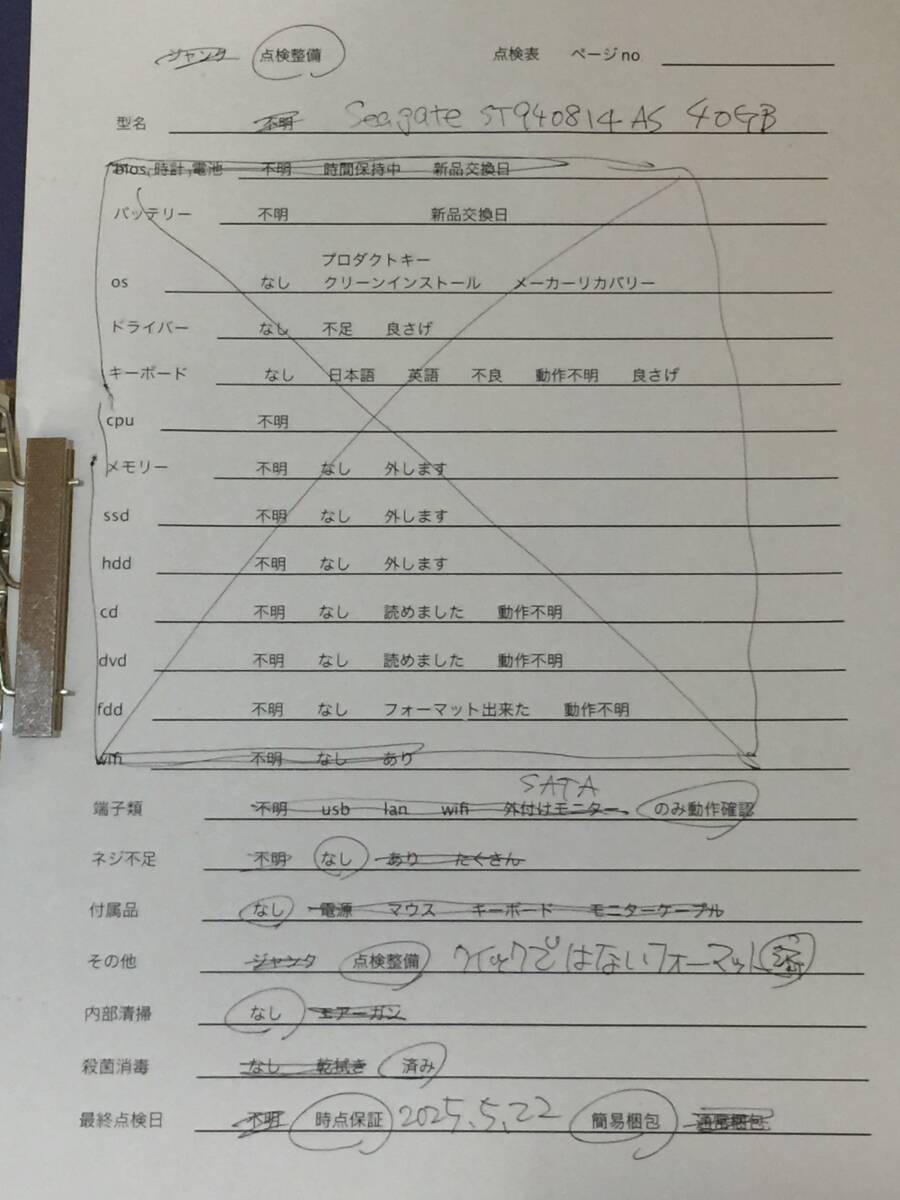 ジャンク 点検整備 点検表 ページno
型名 不明 Seagate ST940814AS 40GB
bios,時計,電池 不明 時間保持中 新品交換日
バッテリー 不明 新品交換日
プロダクトキー
os なし クリーンインストール メーカーリカバリー
ドライバー なし 不足 良さげ
キーボード なし 日本語 英語 不良 動作不明 良さげ
cpu 不明
メモリー 不明 なし 外します
ssd 不明 なし 外します
hdd 不明 なし 外します
cd 不明 なし 読めました 動作不明
dvd 不明 なし 読めました 動作不明
fdd 不明 なし フォーマット出来た 動作不明
wifi 不明 なし あり
SATA
端子類 不明 usb lan wifi 外付けモニター のみ動作確認
ネジ不足 不明 なし あり たくさん
付属品 なし 電源 マウス キーボード モニターケーブル
その他 ジャンク 点検整備 クイックではないフォーマット済
内部清掃 なし エアーガン
殺菌消毒 なし 乾拭き 済み
最終点検日 不明 時点保証 2025.5.22 簡易梱包 通常梱包